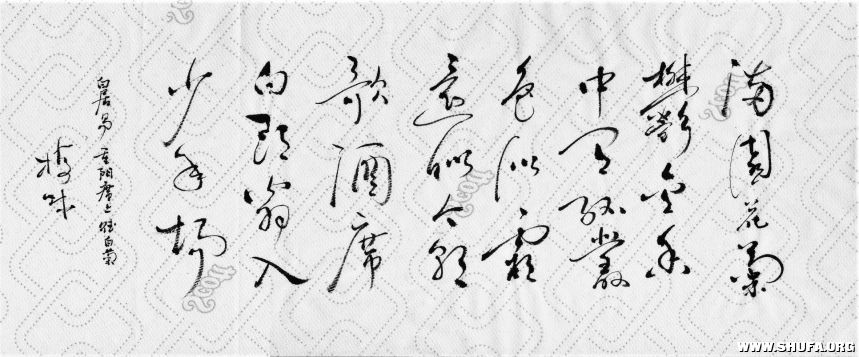 满園花菊
欝金香
中有孤叢
色似霜
還似今朝
歌酒席
白頭翁入
少年場
白居易 重阳席上赋白菊
梅味
WWW.SHUFA.ORG